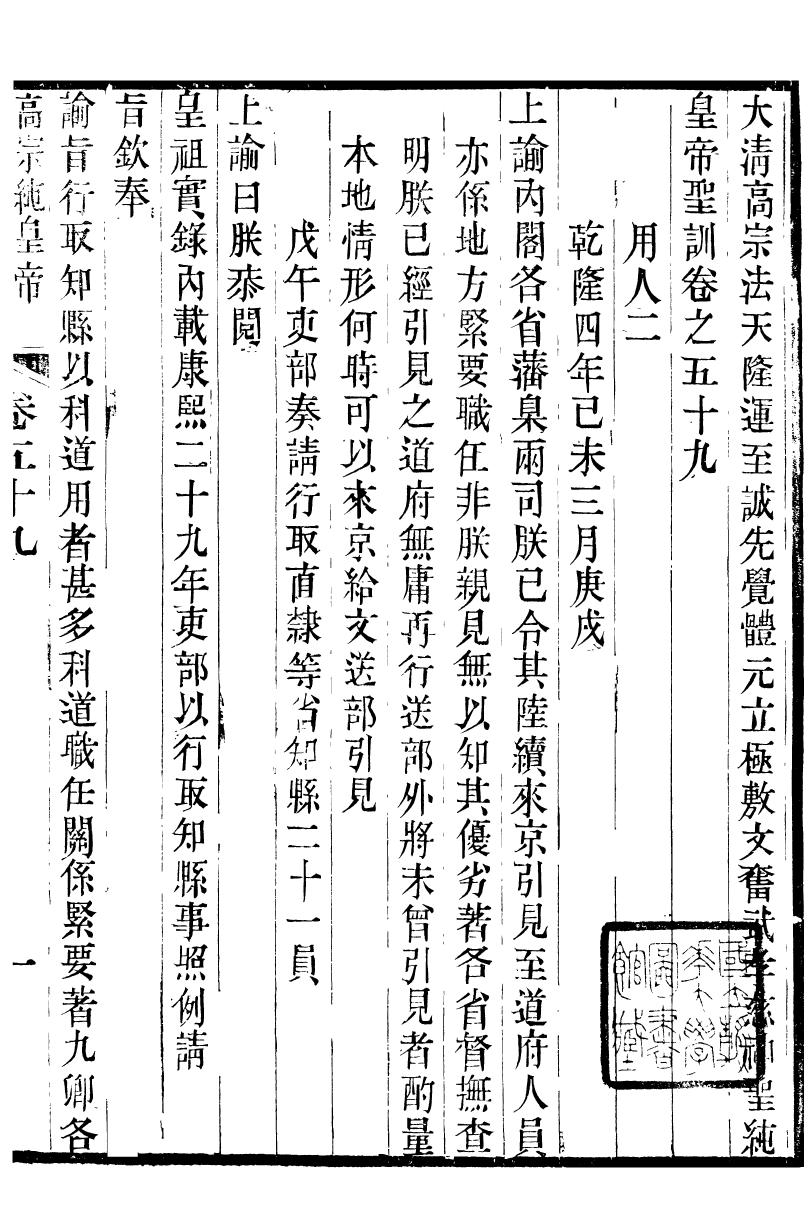 大清高宗法天隆運至誠先覺體元立極敷文奮武孝慈神聖純
皇帝聖訓卷之五十九
用人二
乾隆四年己未三月庚戌
上諭內閣各省藩臬兩司朕已令其陸續來京引見至道府人員
亦係地方緊要職任非朕親見無以知其優劣著各省督撫查
明朕已經引見之道府無庸再行送部外將未曾引見者酌量
本地情形何時可以來京給文送部引見
戊午吏部奏請行取直隸等省知縣二十一員
上諭曰朕恭閱
皇祖實錄內載康熙二十九年吏部以行取知縣事照例請
旨欽奉
諭旨行取知縣以科道用者甚多科道職任關係緊要著九卿各
高宗純皇帝 卷五十九 一